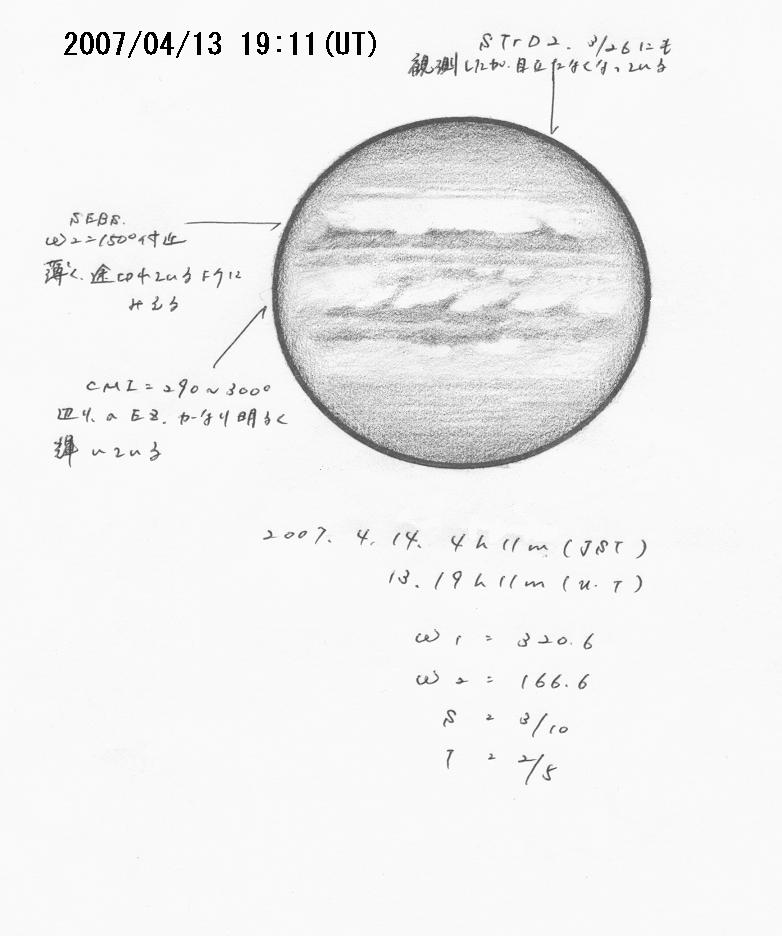 2007/04/13 19:11(UT)
STrD2. 3/26にも
観測したが、目立たなくなっている
SEBs.
ω2=150°付近
薄く、途切れているように
みえる
CMI=290~300°
辺りのEZ.かなり明るく
輝いている
2007. 4. 14. 4h11m(JST)
13. 19h11m(U.T)
ω1 = 320.6
ω2 = 166.6
S = 3/10
T = 2/5